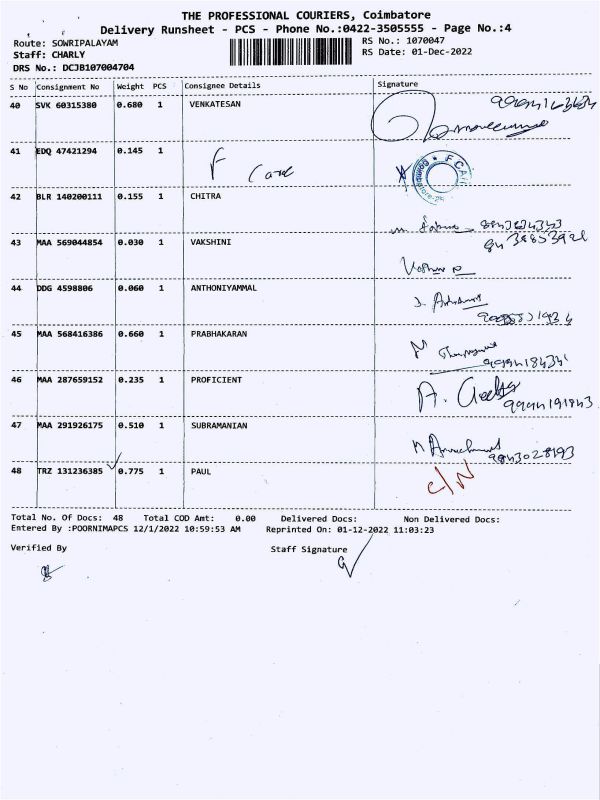 THE PROFESSIONAL COURIERS, Coimbatore
Delivery Runsheet - PCS - Phone No.:0422-3505555 - Page No.:4
Route: SOWRIPALAYAM RS No.: 1070047
Staff: CHARLY RS Date: 01-Dec-2022
DRS No.: DCJB107004704
S No Consignment No Weight PCS Consignee Details Signature
40 SVK 60315380 0.680 1 VENKATESAN
41 EDQ 47421294 0.145 1 F Care
42 BLR 140200111 0.155 1 CHITRA
43 MAA 569044854 0.030 1 VAKSHINI
44 DDG 4598806 0.060 1 ANTHONIYAMMAL
45 MAA 568416386 0.660 1 PRABHAKARAN
46 MAA 287659152 0.235 1 PROFICIENT
9994191843
47 MAA 291926175 0.510 1 SUBRAMANIAN
9843028193
48 TRZ 131236385 0.775 1 PAUL C/N
Total No. Of Docs: 48 Total COD Amt: 0.00 Delivered Docs: Non Delivered Docs:
Entered By :POORNIMAPCS 12/1/2022 10:59:53 AM Reprinted On: 01-12-2022 11:03:23
Verified By Staff Signature